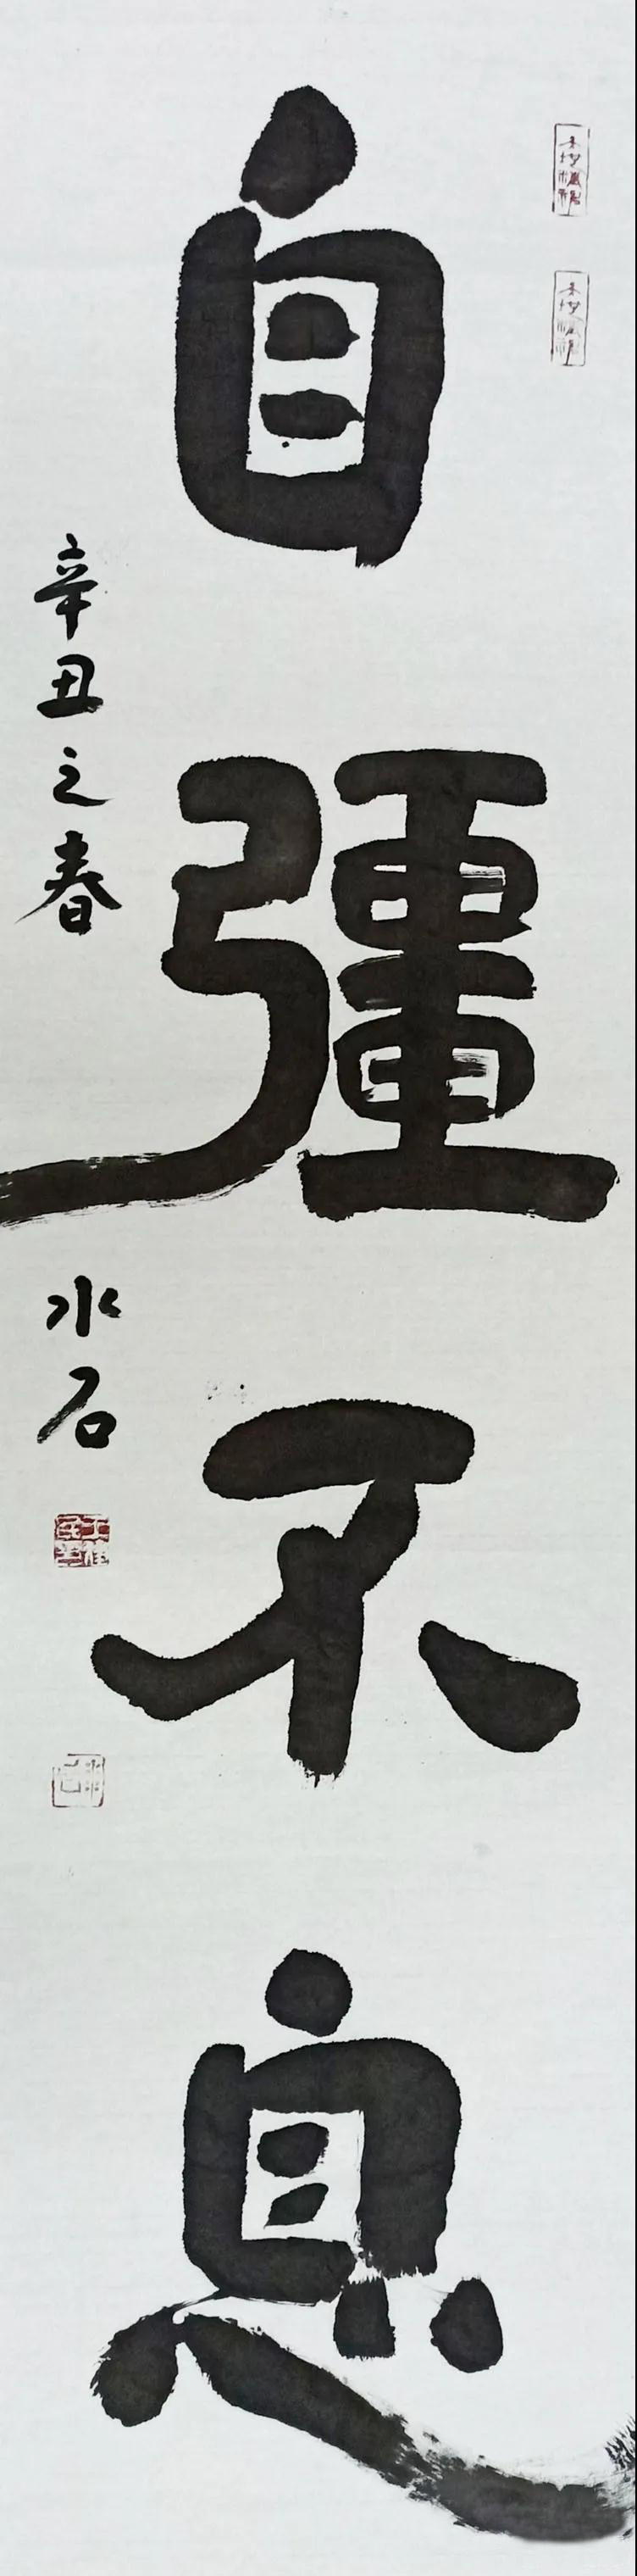 自彊不息
辛丑之春
水石